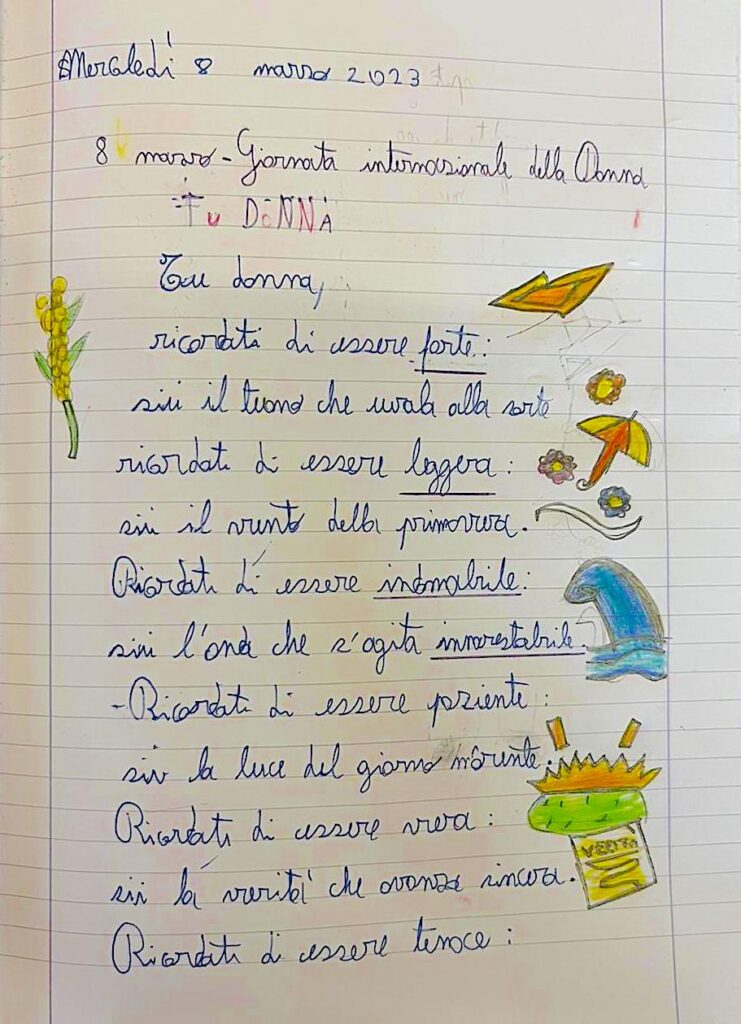 Mercoledì 8 marzo 2023
8 marzo - Giornata internazionale della Donna
Tu DoNNA
Tu donna,
ricordati di essere forte:
sii il tuono che urla alla sorte
ricordati di essere leggera:
sii il vento della primavera.
Ricordati di essere indomabile:
sii l'onda che s'agita innarestabile.
- Ricordati di essere paziente:
sii la luce del giorno morente.
Ricordati di essere vera:
sii la verità che avanza sincera.
VERITÀ
Ricordati di essere tenace: